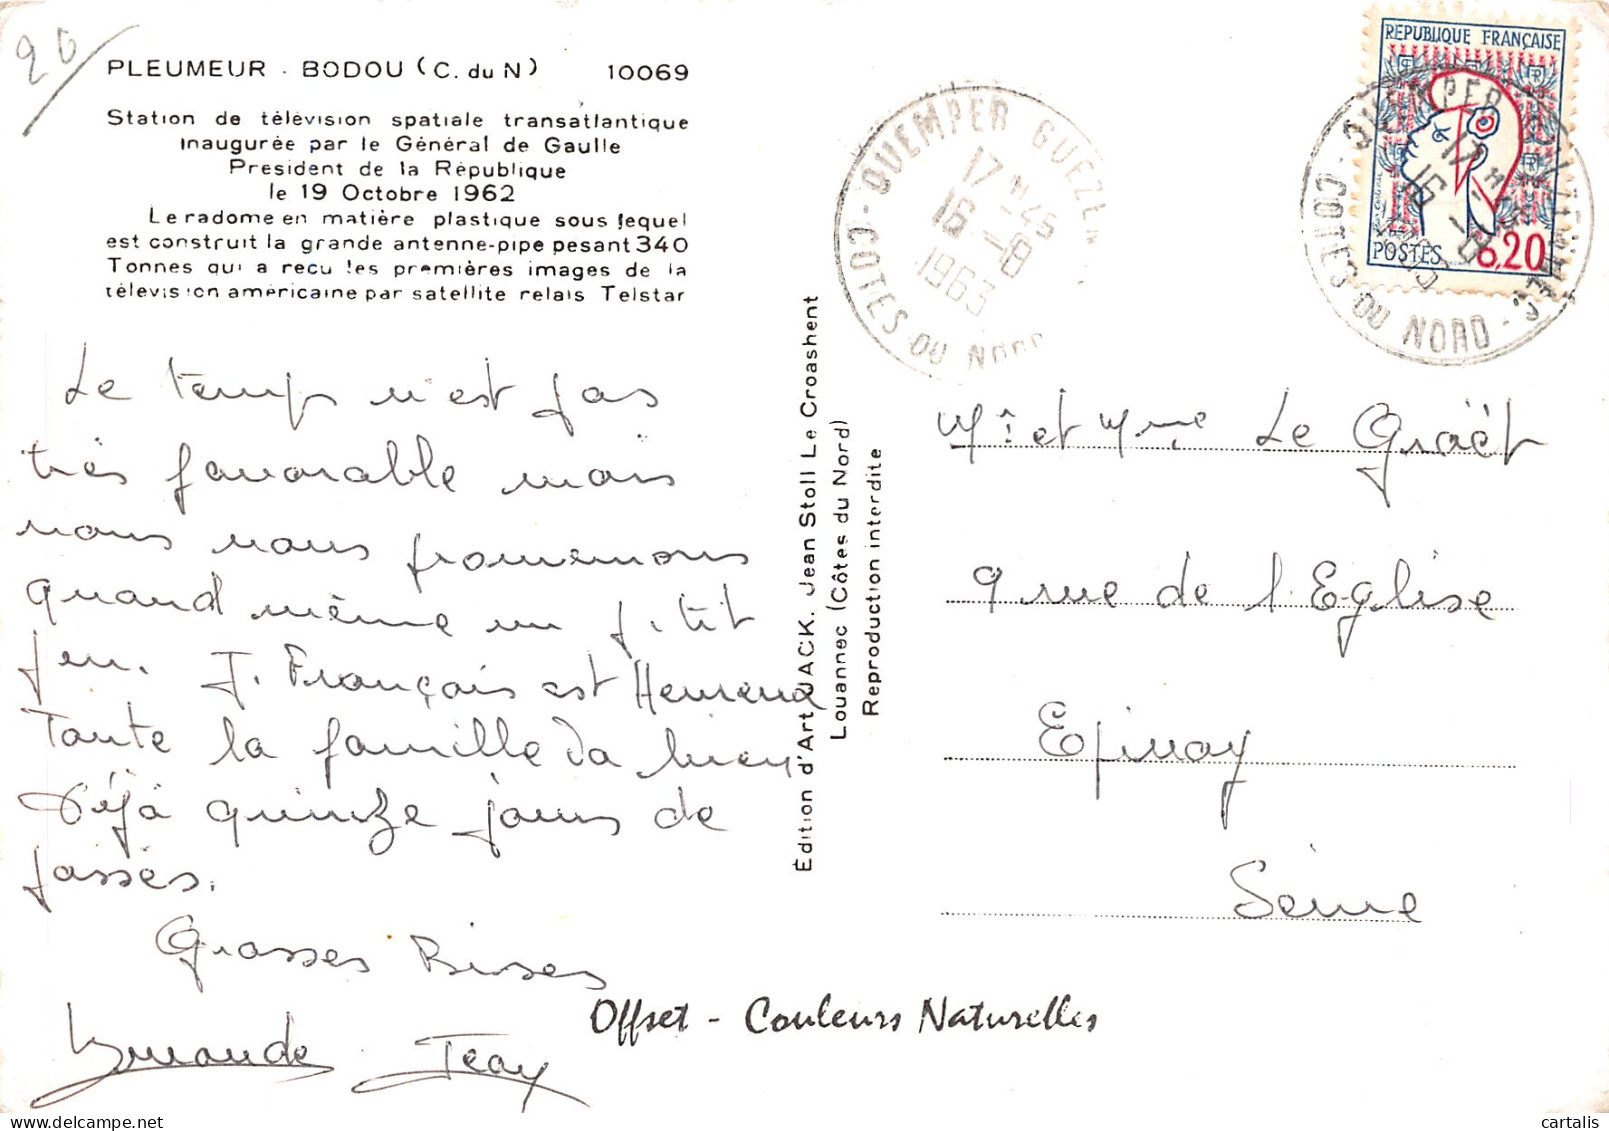 20
PLEUMEUR - BODOU (C. du N) 10069
Station de télévision spatiale transatlantique
Inaugurée par le Général de Gaulle
President de la République
le 19 Octobre 1962
Le radome en matière plastique sous lequel
est construit la grande antenne-pipe pesant 340
Tonnes qui a recu les premières images de la
télévision américaine par satellite relais Telstar
Le temps n'est pas
très favorable mais
nous nous promenons
quand même un p'tit
peu. J. Français est
Toute la famille va bien
Déjà quinze jours de
passés.
Grosses Bises
Jean
Édition d'Art JACK. Jean Stoll Le Croashent
Louannec (Côtes du Nord)
Reproduction interdite
Offset - Couleurs Naturelles
QUEMPER GUEZE
17 H 45
16 -8
1963
COTES DU NORD
REPUBLIQUE FRANÇAISE
POSTES 0,20
COTES DU NORD
Mr et Mme Le Graët
9 rue de l'Eglise
Epinay
Seine
cartalis